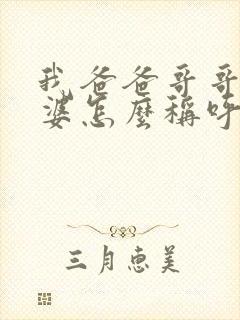 我爸爸哥哥
婆怎麼稱呼
三月惠美